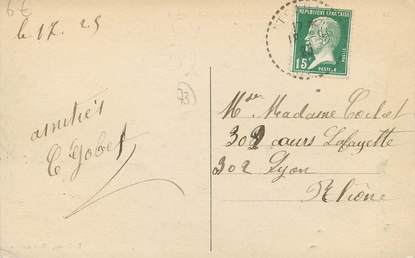 6€
le 17. 25
amitiés
C Gobet
73
REPUBLIQUE FRANÇAISE
15c
POSTES
Madame Cochet
302 cours Lafayette
302 Lyon
Rhône